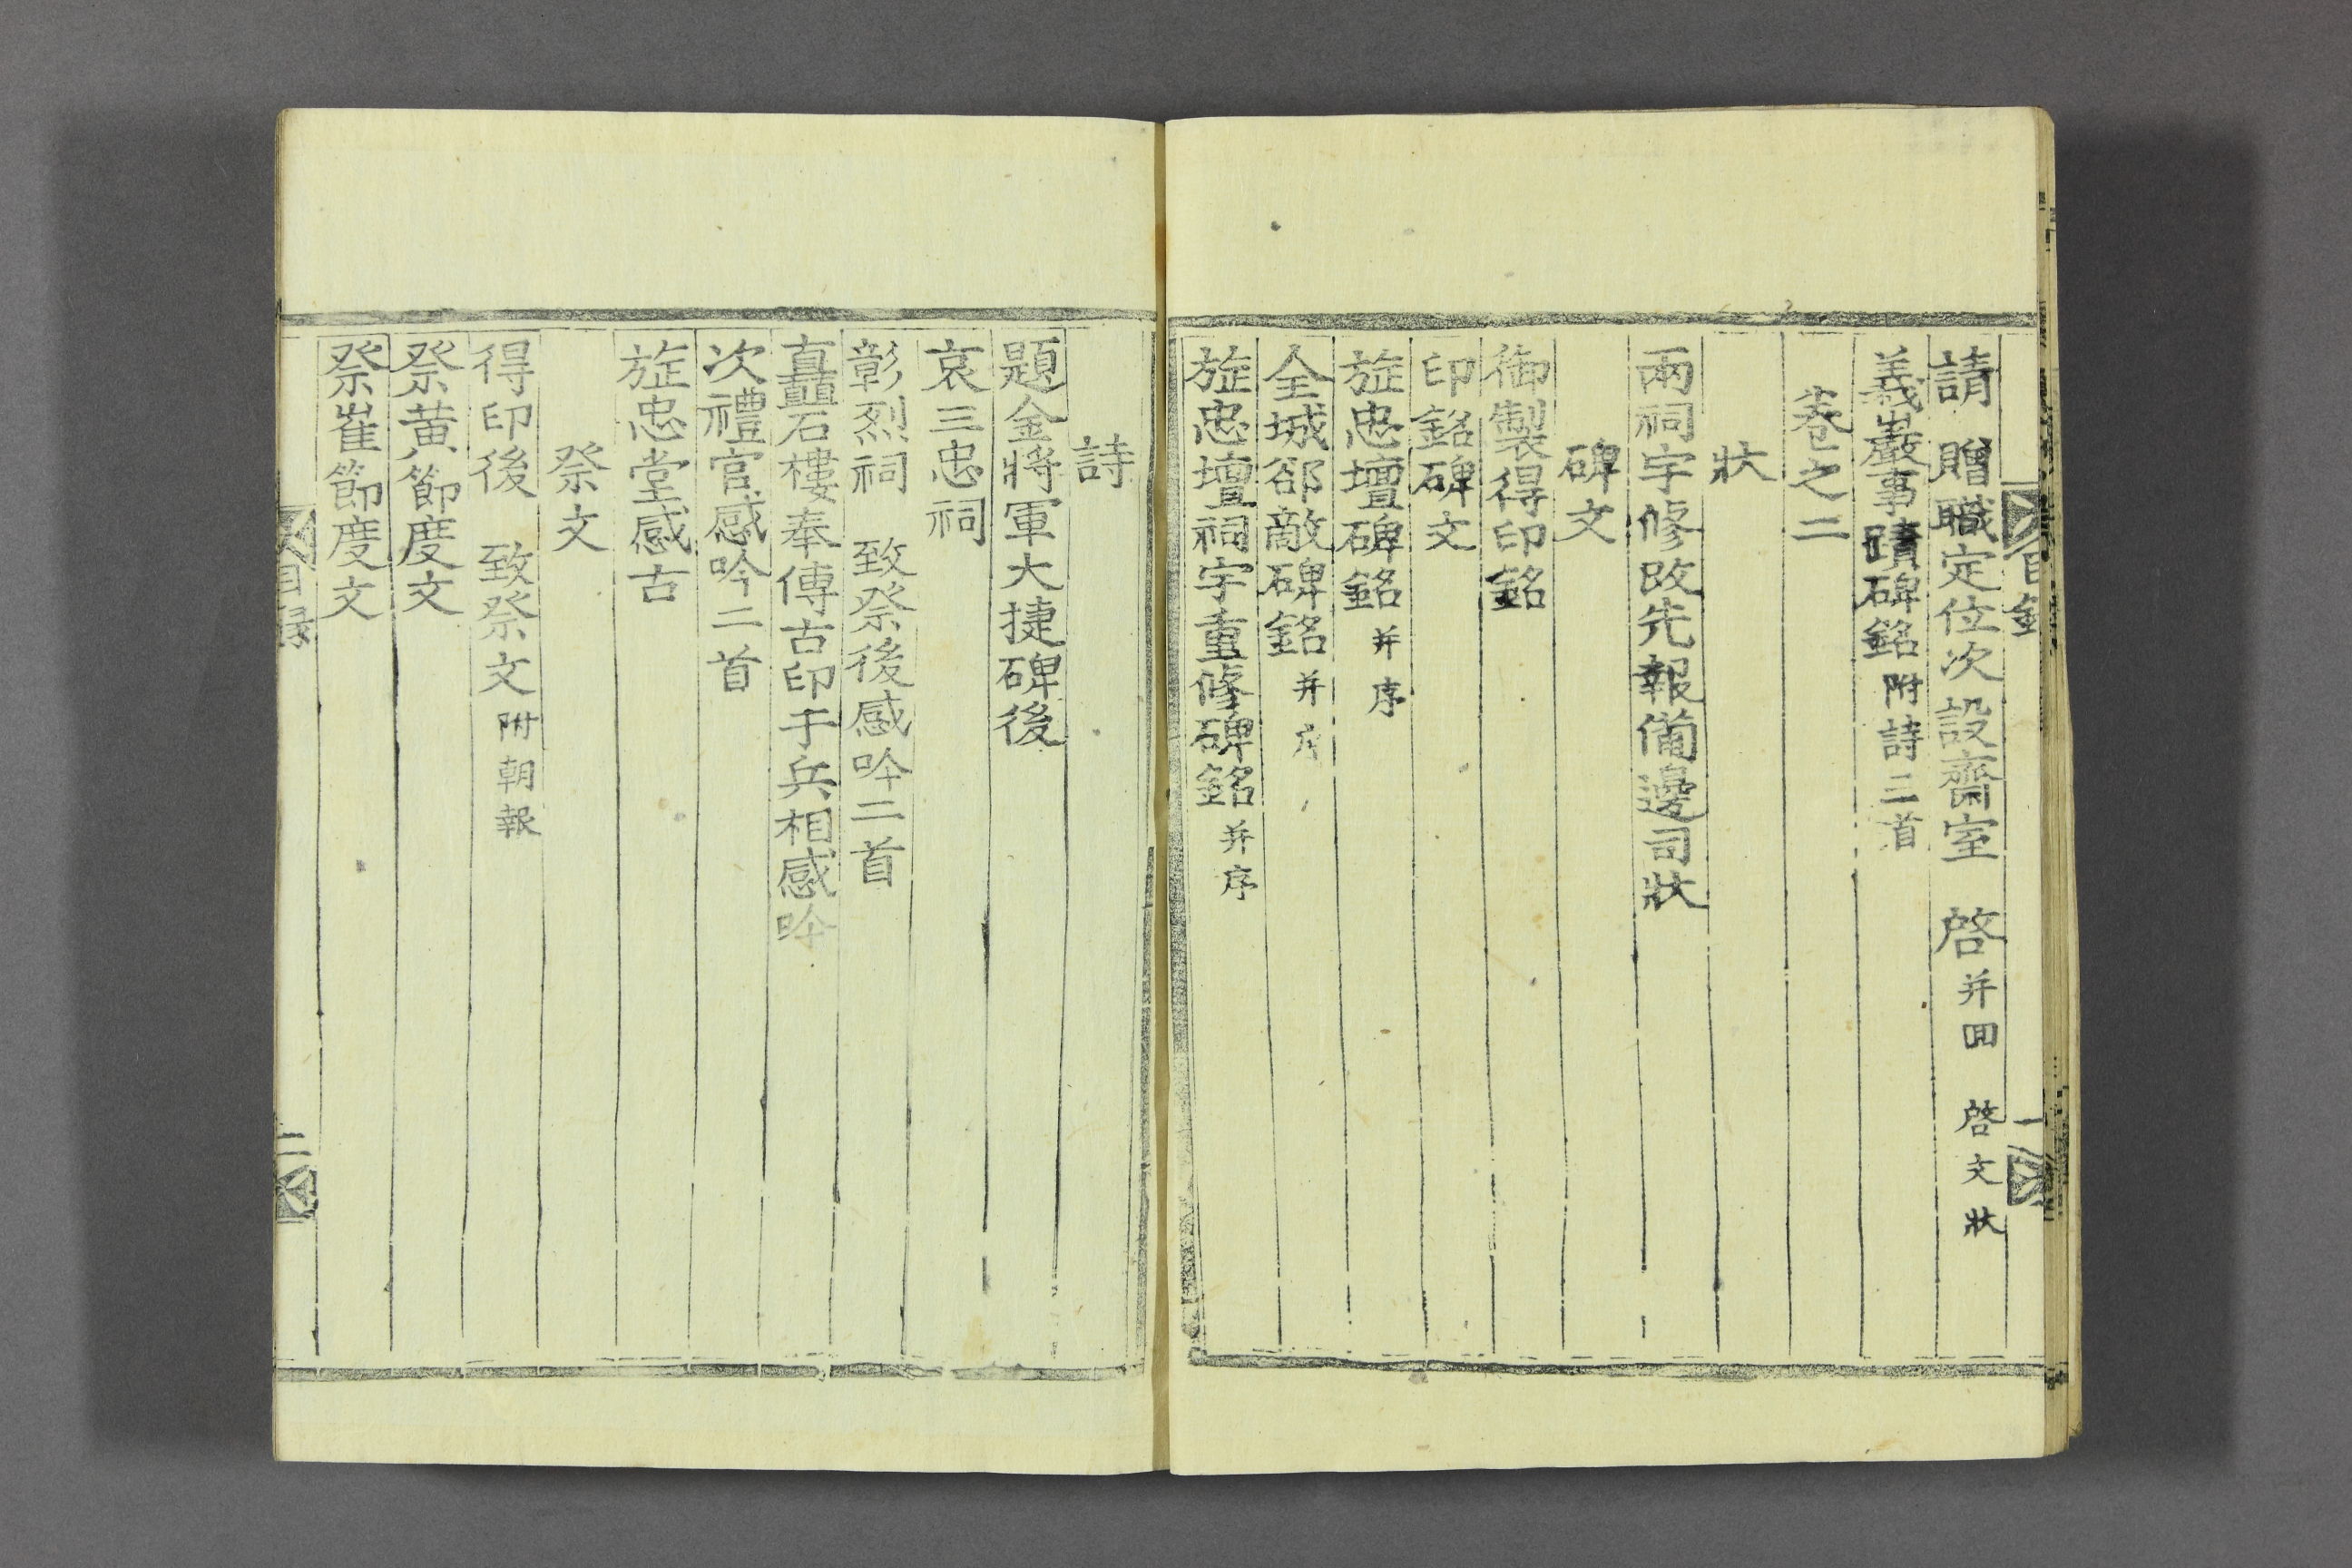 目錄
一
請 贈職定位次設齋室 啓并回 啓文狀
義巖事蹟碑銘附詩三首
卷之二
狀
兩祠宇修改先報備邊司狀
碑文
御製得印銘
印銘碑文
旌忠壇碑銘并序
全城郤敵碑銘并序
旌忠壇祠宇重修碑銘并序
詩
題金將軍大捷碑後
哀三忠祠
彰烈祠 致祭後感吟二首
矗石樓奉傳古印于兵相感吟
次禮官感吟二首
旌忠堂感古
祭文
得印後 致祭文附朝報
祭黃節度文
祭崔節度文
目錄
二